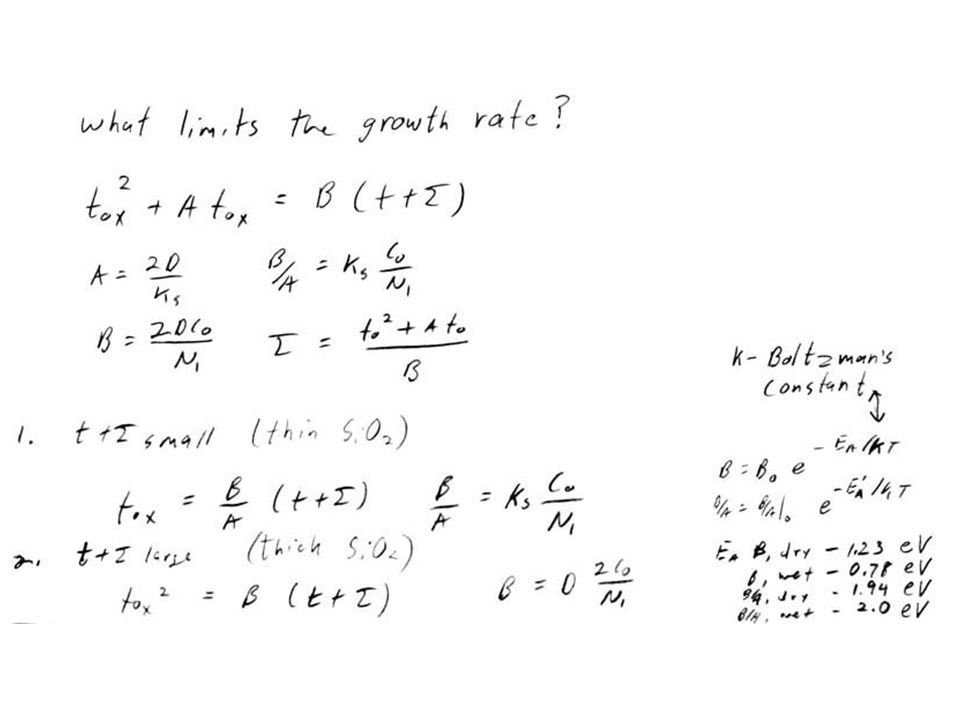 what limits the growth rate?
tox² + A tox = B (t+Σ)
A = 2D/Ks    B/A = Ks Co/N1
B = 2DCo/N1    Σ = (to² + A to)/B
K - Boltzman's
Constant
1. t+Σ small (thin SiO2)
B = Bo e^(-EA/KT)
tox = B/A (t+Σ)    B/A = Ks Co/N1
B/A = B/A|o e^(-EA'/KT)
2. t+Σ large (thick SiO2)
tox² = B (t+Σ)    B = D 2Co/N1
EA B, dry - 1.23 eV
B, wet - 0.78 eV
B/A, dry - 1.94 eV
B/A, wet - 2.0 eV